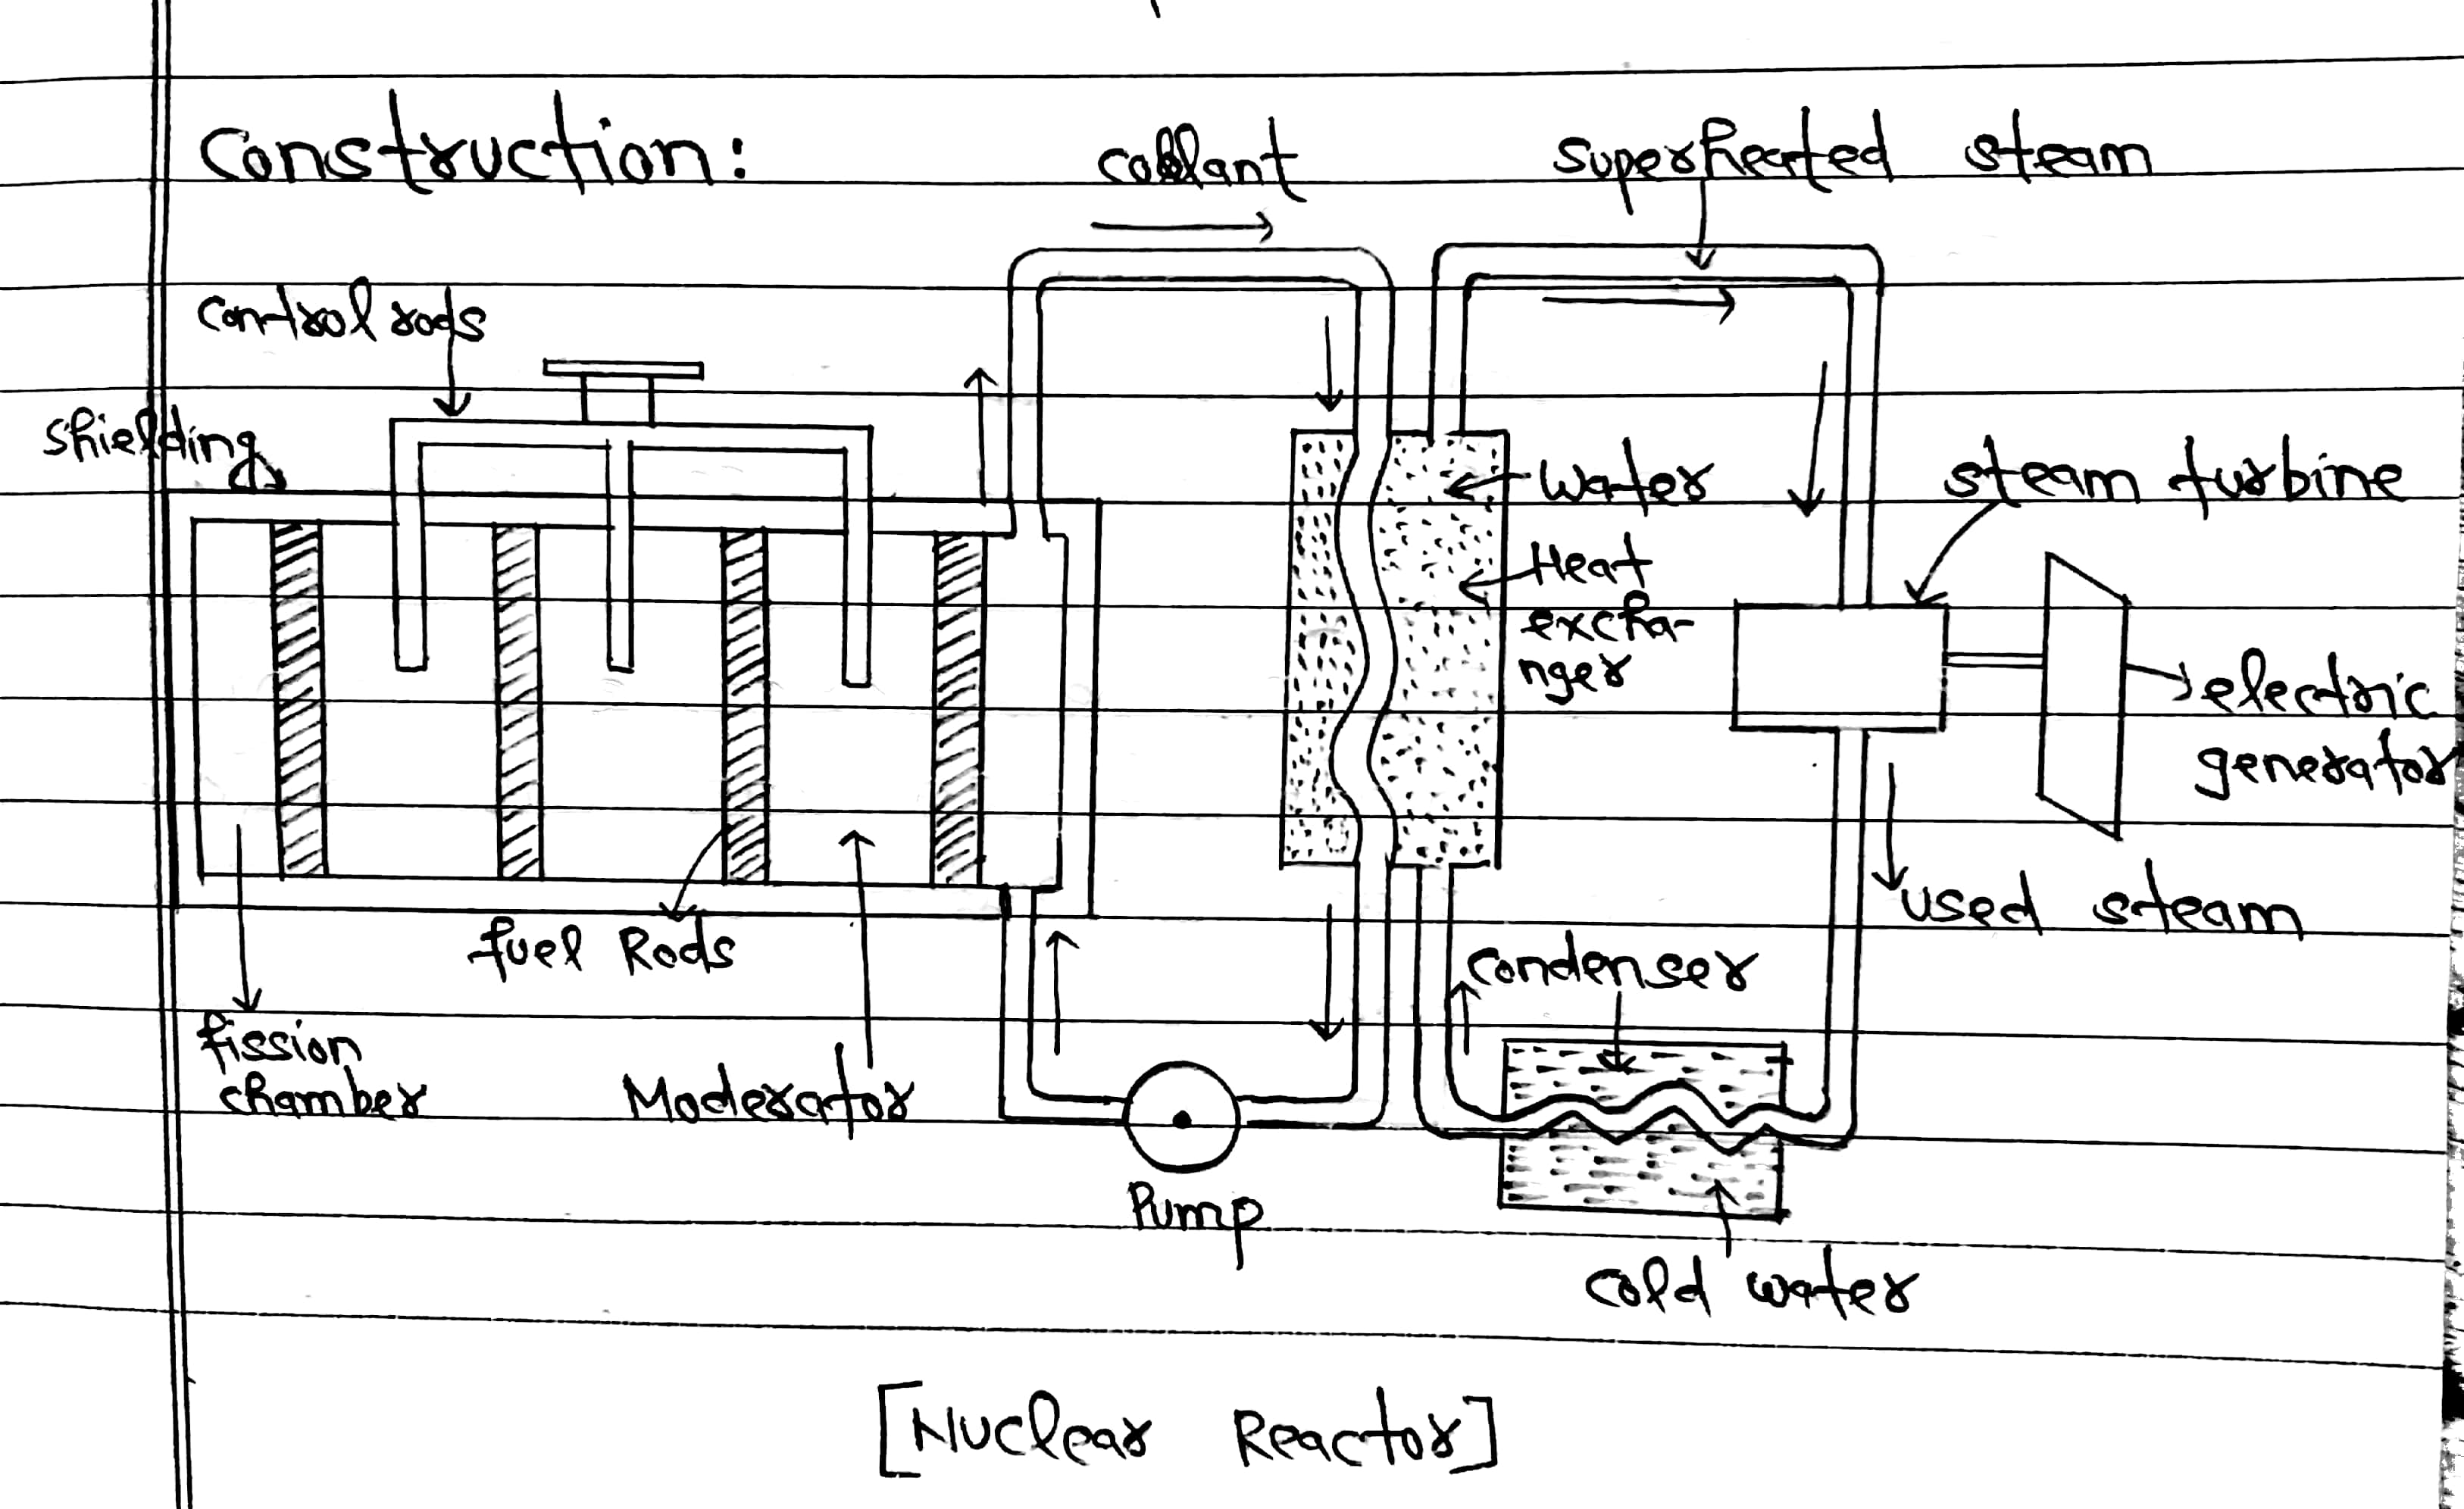 Construction:
coolant
superheated steam
control rods
shielding
water
steam turbine
Heat
excha-
nger
electric
generator
used steam
fuel Rods
condenser
fission
chamber
Moderator
Pump
cold water
[Nuclear Reactor]